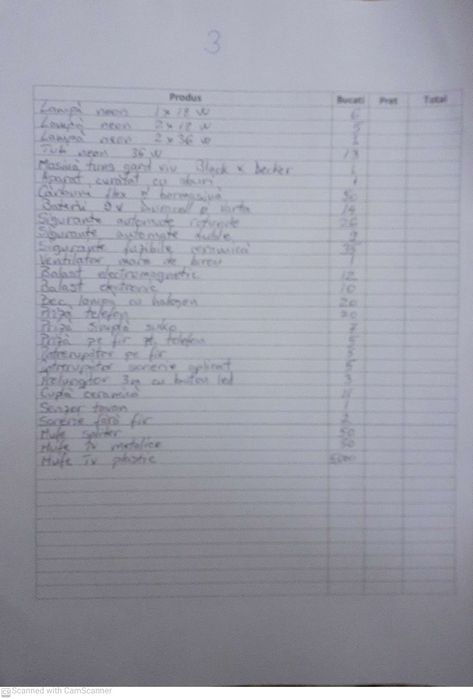 3
Produs Bucati Pret Total
Lampă neon 1 x 18 w 6
Lampă neon 2 x 18 w
Lampă neon 2 x 36 w
Tub neon 36 w
Masină tuns gard viu Black x Decker 1
Aparat curatat cu aburi 1
Cărbuni flex si bormasină 50
Baterii 9v Duracel si Varta 14
Sigurante automate rotunde 26
Sigurante automate duble 2
Sigurante fuzibile ceramică 35
Ventilator masa de birou 1
Balast electromagnetic 12
Balast electronic 10
Bec lampă cu halogen 20
Priză telefon 20
Priză simplă 7
Priză pe fir pt. telefon 5
Intrerupător pe fir 5
Intrerupător sonerie aplicat 5
Prelungitor 3m cu buton led 3
Cuplă ceramică 11
Senzor tavan 1
Sonerie fără fir 2
Mufe spliter 50
Mufe Tv metalice 50
Mufe Tv plastic 5000
Scanned with CamScanner